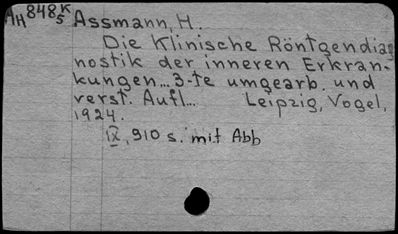 AH 848 K/5 Assmann, H.
Die Klinische Röntgendiag
nostik der inneren Erkran-
kungen... 3-te umgearb. und
verst. Aufl... Leipzig, Vogel,
1924.
IX, 910 s. mit Abb